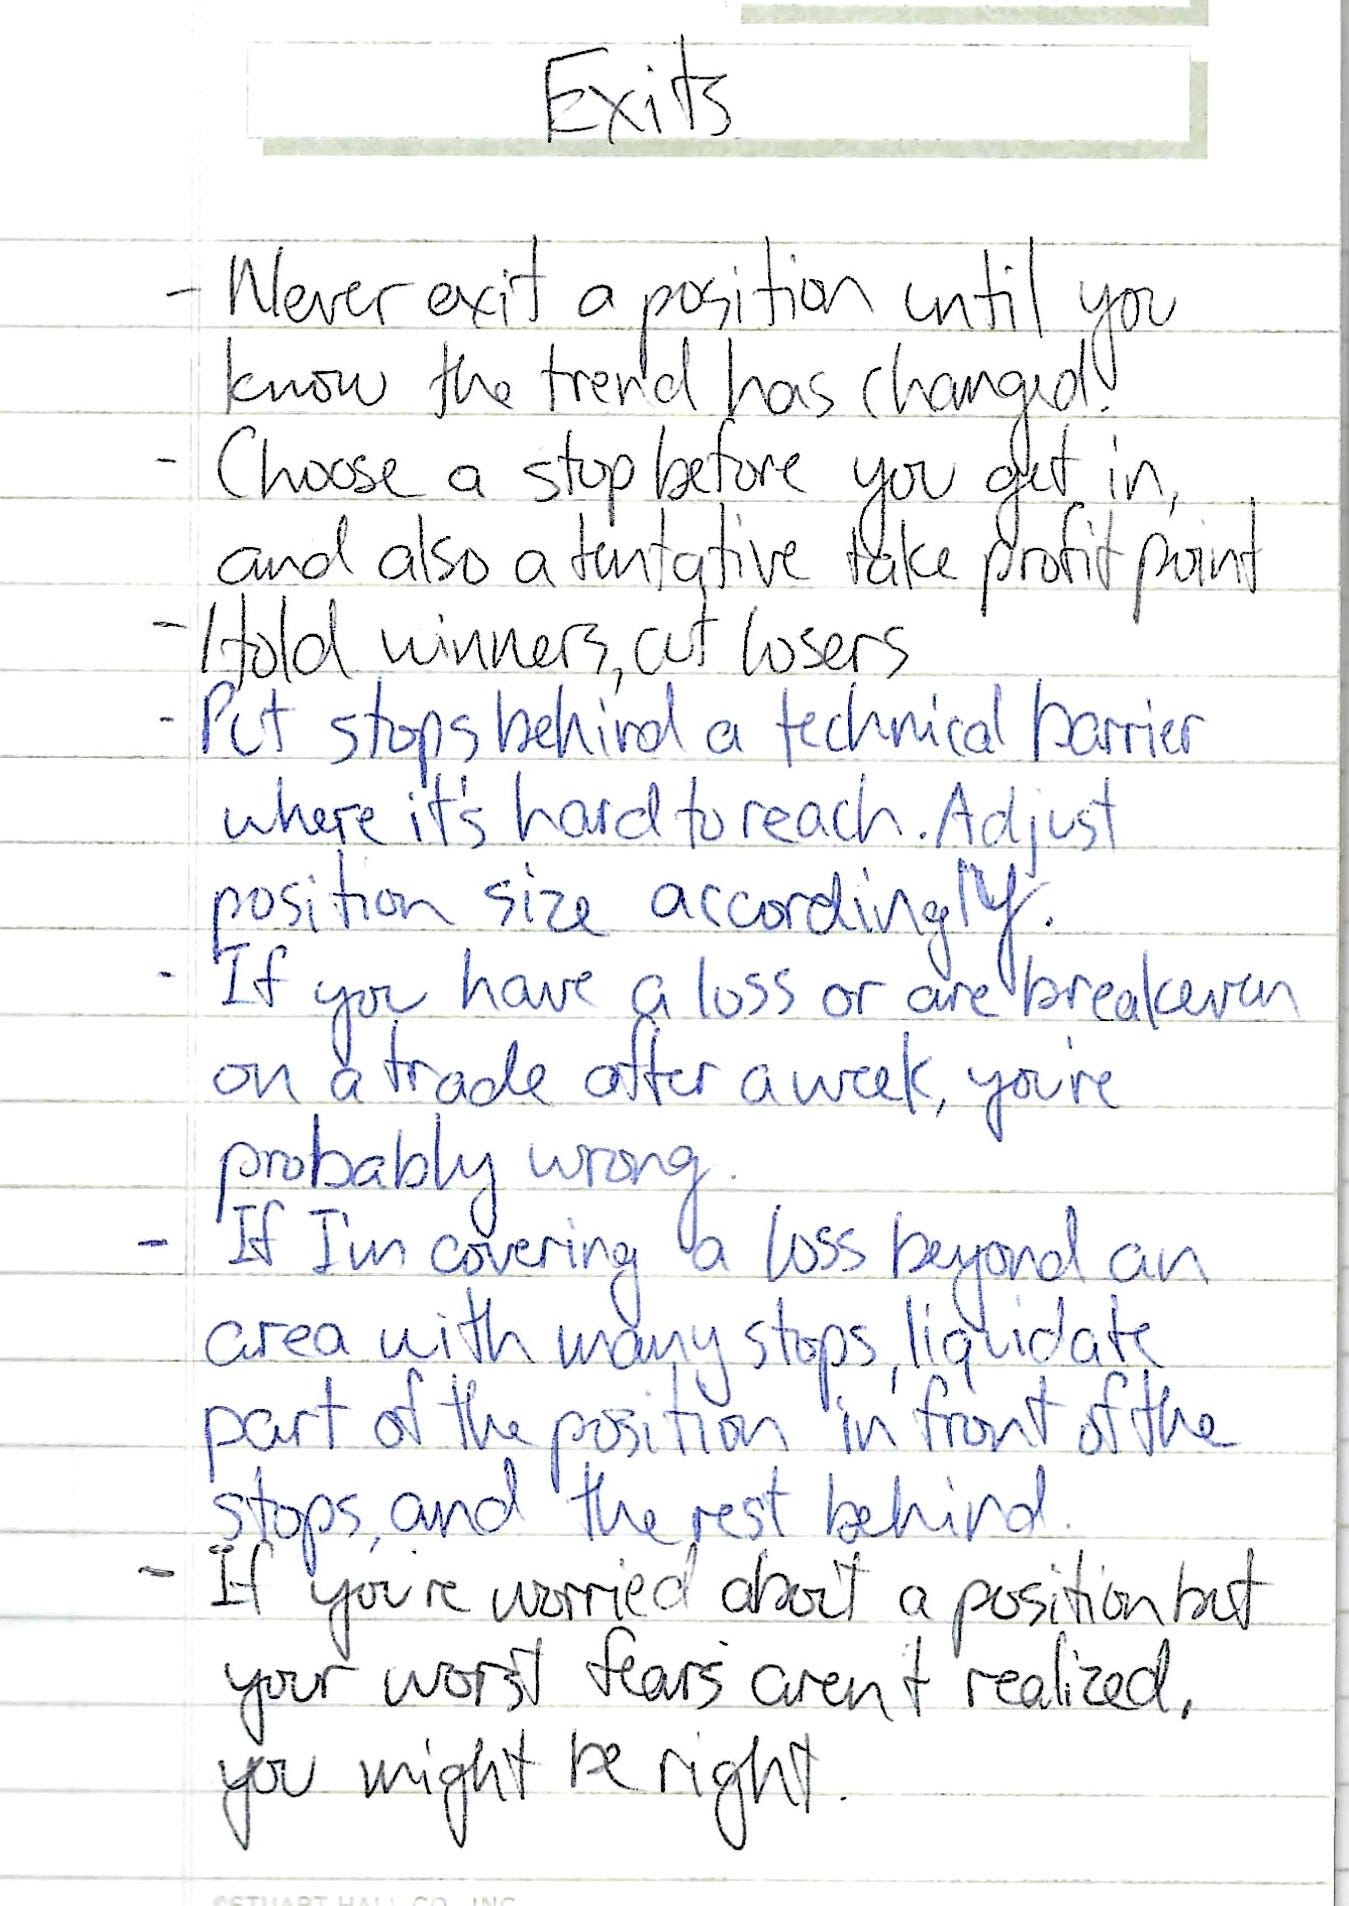 Exits
- Never exit a position until you
know the trend has changed!
- Choose a stop before you get in,
and also a tentative take profit point
- Hold winners, cut losers
- Put stops behind a technical barrier
where it's hard to reach. Adjust
position size accordingly.
- If you have a loss or are breakeven
on a trade after a week, you're
probably wrong.
- If I'm covering a loss beyond an
area with many stops, liquidate
part of the position in front of the
stops, and the rest behind.
- If you're worried about a position but
your worst fears aren't realized,
you might be right.
©STUART HALL CO., INC.